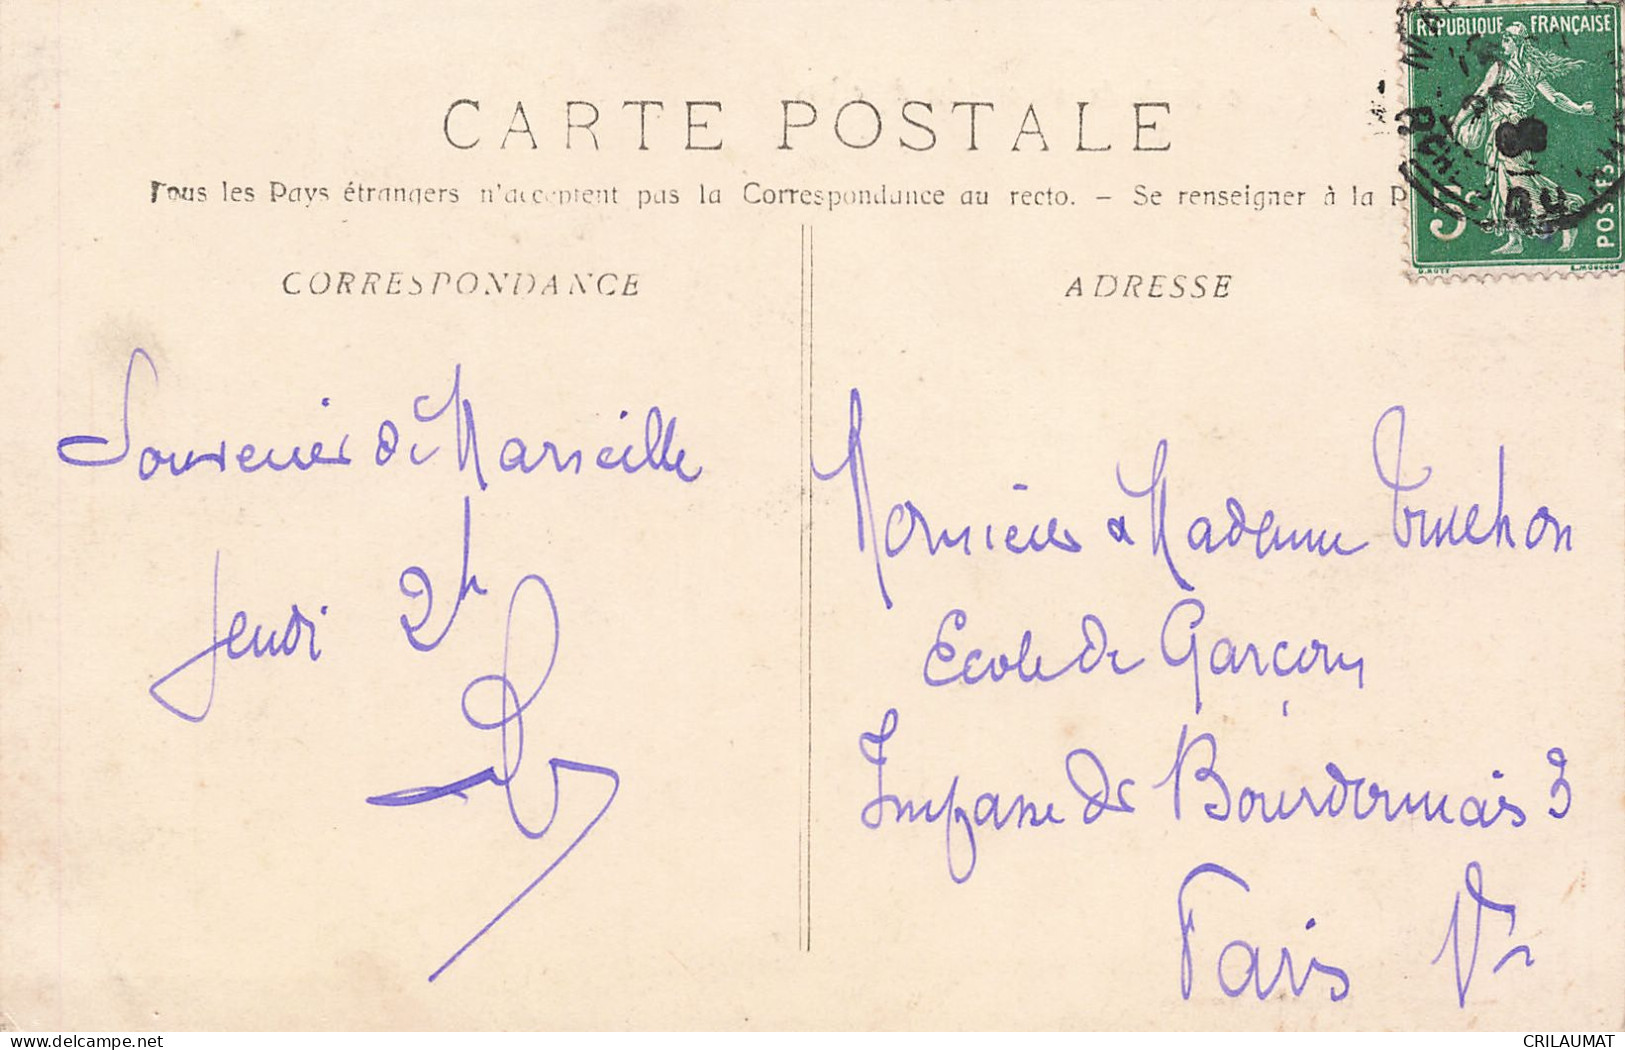 CARTE POSTALE
Tous les Pays étrangers n'acceptent pas la Correspondance au recto. – Se renseigner à la P
CORRESPONDANCE
ADRESSE
REPUBLIQUE FRANÇAISE
5
POSTES
Souvenir de Marseille
Jeudi 2h
Monsieur & Madame Truchon
Ecole de Garçons
Impasse des Bourdonnais 3
Paris
www.delcampe.net
CRILAUMAT